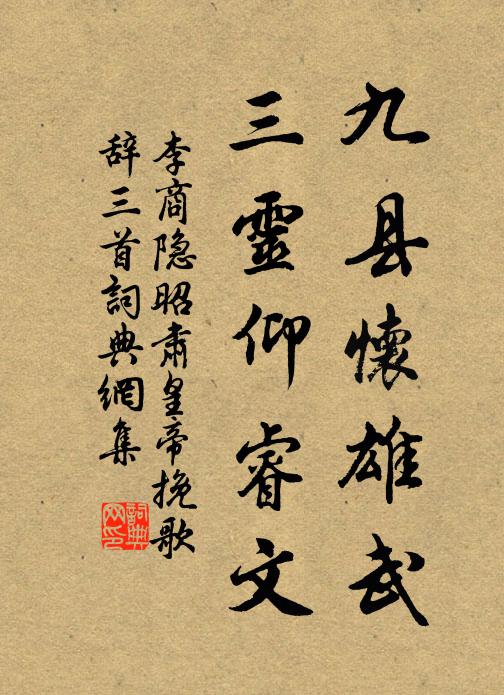 九县懷雄武
三靈仰睿文
李商隐昭肃皇帝挽歌
辞三首詞典網集
詞典网印